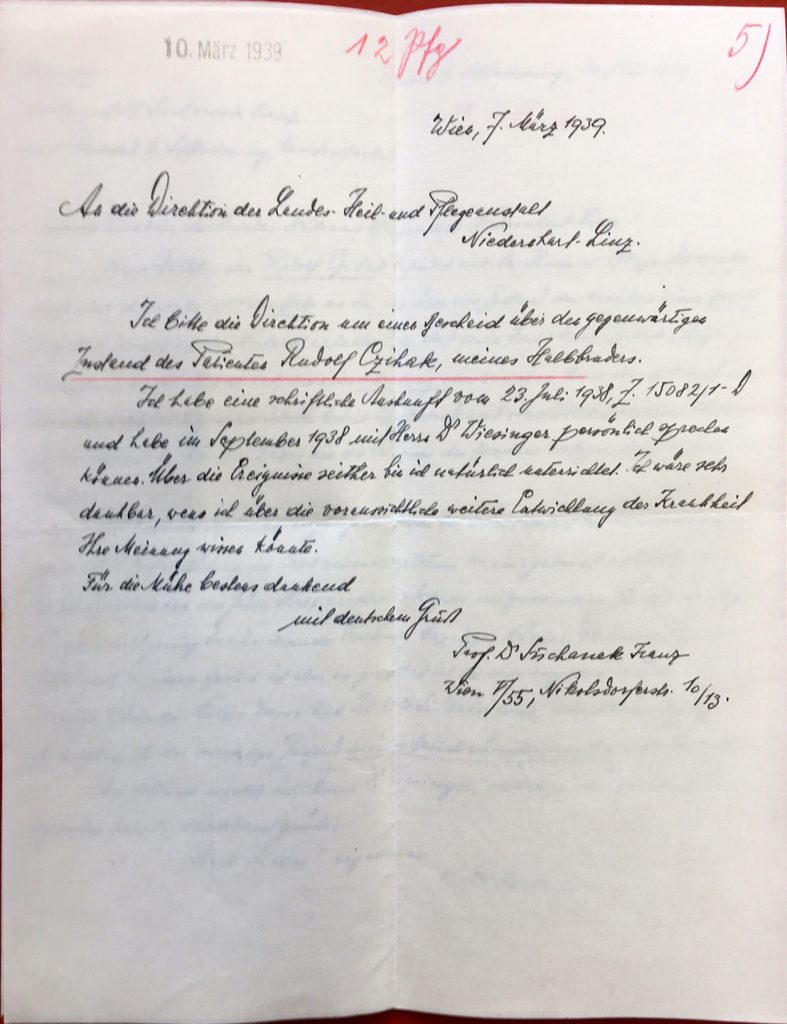 10. März 1939
12 Pfg
5)
Wien, 7. März 1939.
An die Direktion der Landes-Heil- und Pflegeanstalt
Niedernhart-Linz.
Ich bitte die Direktion um einen Bescheid über den gegenwärtigen
Zustand des Patienten Rudolf Czihak, meines Halbbruders.
Ich habe eine schriftliche Auskunft vom 23. Juli 1938, Z. 15082/1-D
und habe im September 1938 mit Herrn Dr Wiesinger persönlich sprechen
können. Über die Ereignisse seither bin ich natürlich unterrichtet. Ich wäre sehr
dankbar, wenn ich über die voraussichtliche weitere Entwicklung der Krankheit
Ihre Meinung wissen könnte.
Für die Mühe bestens dankend
mit deutschem Gruß
Prof. Dr Suchanek Franz
Wien V/55, Nikolsdorferstr. 10/13.